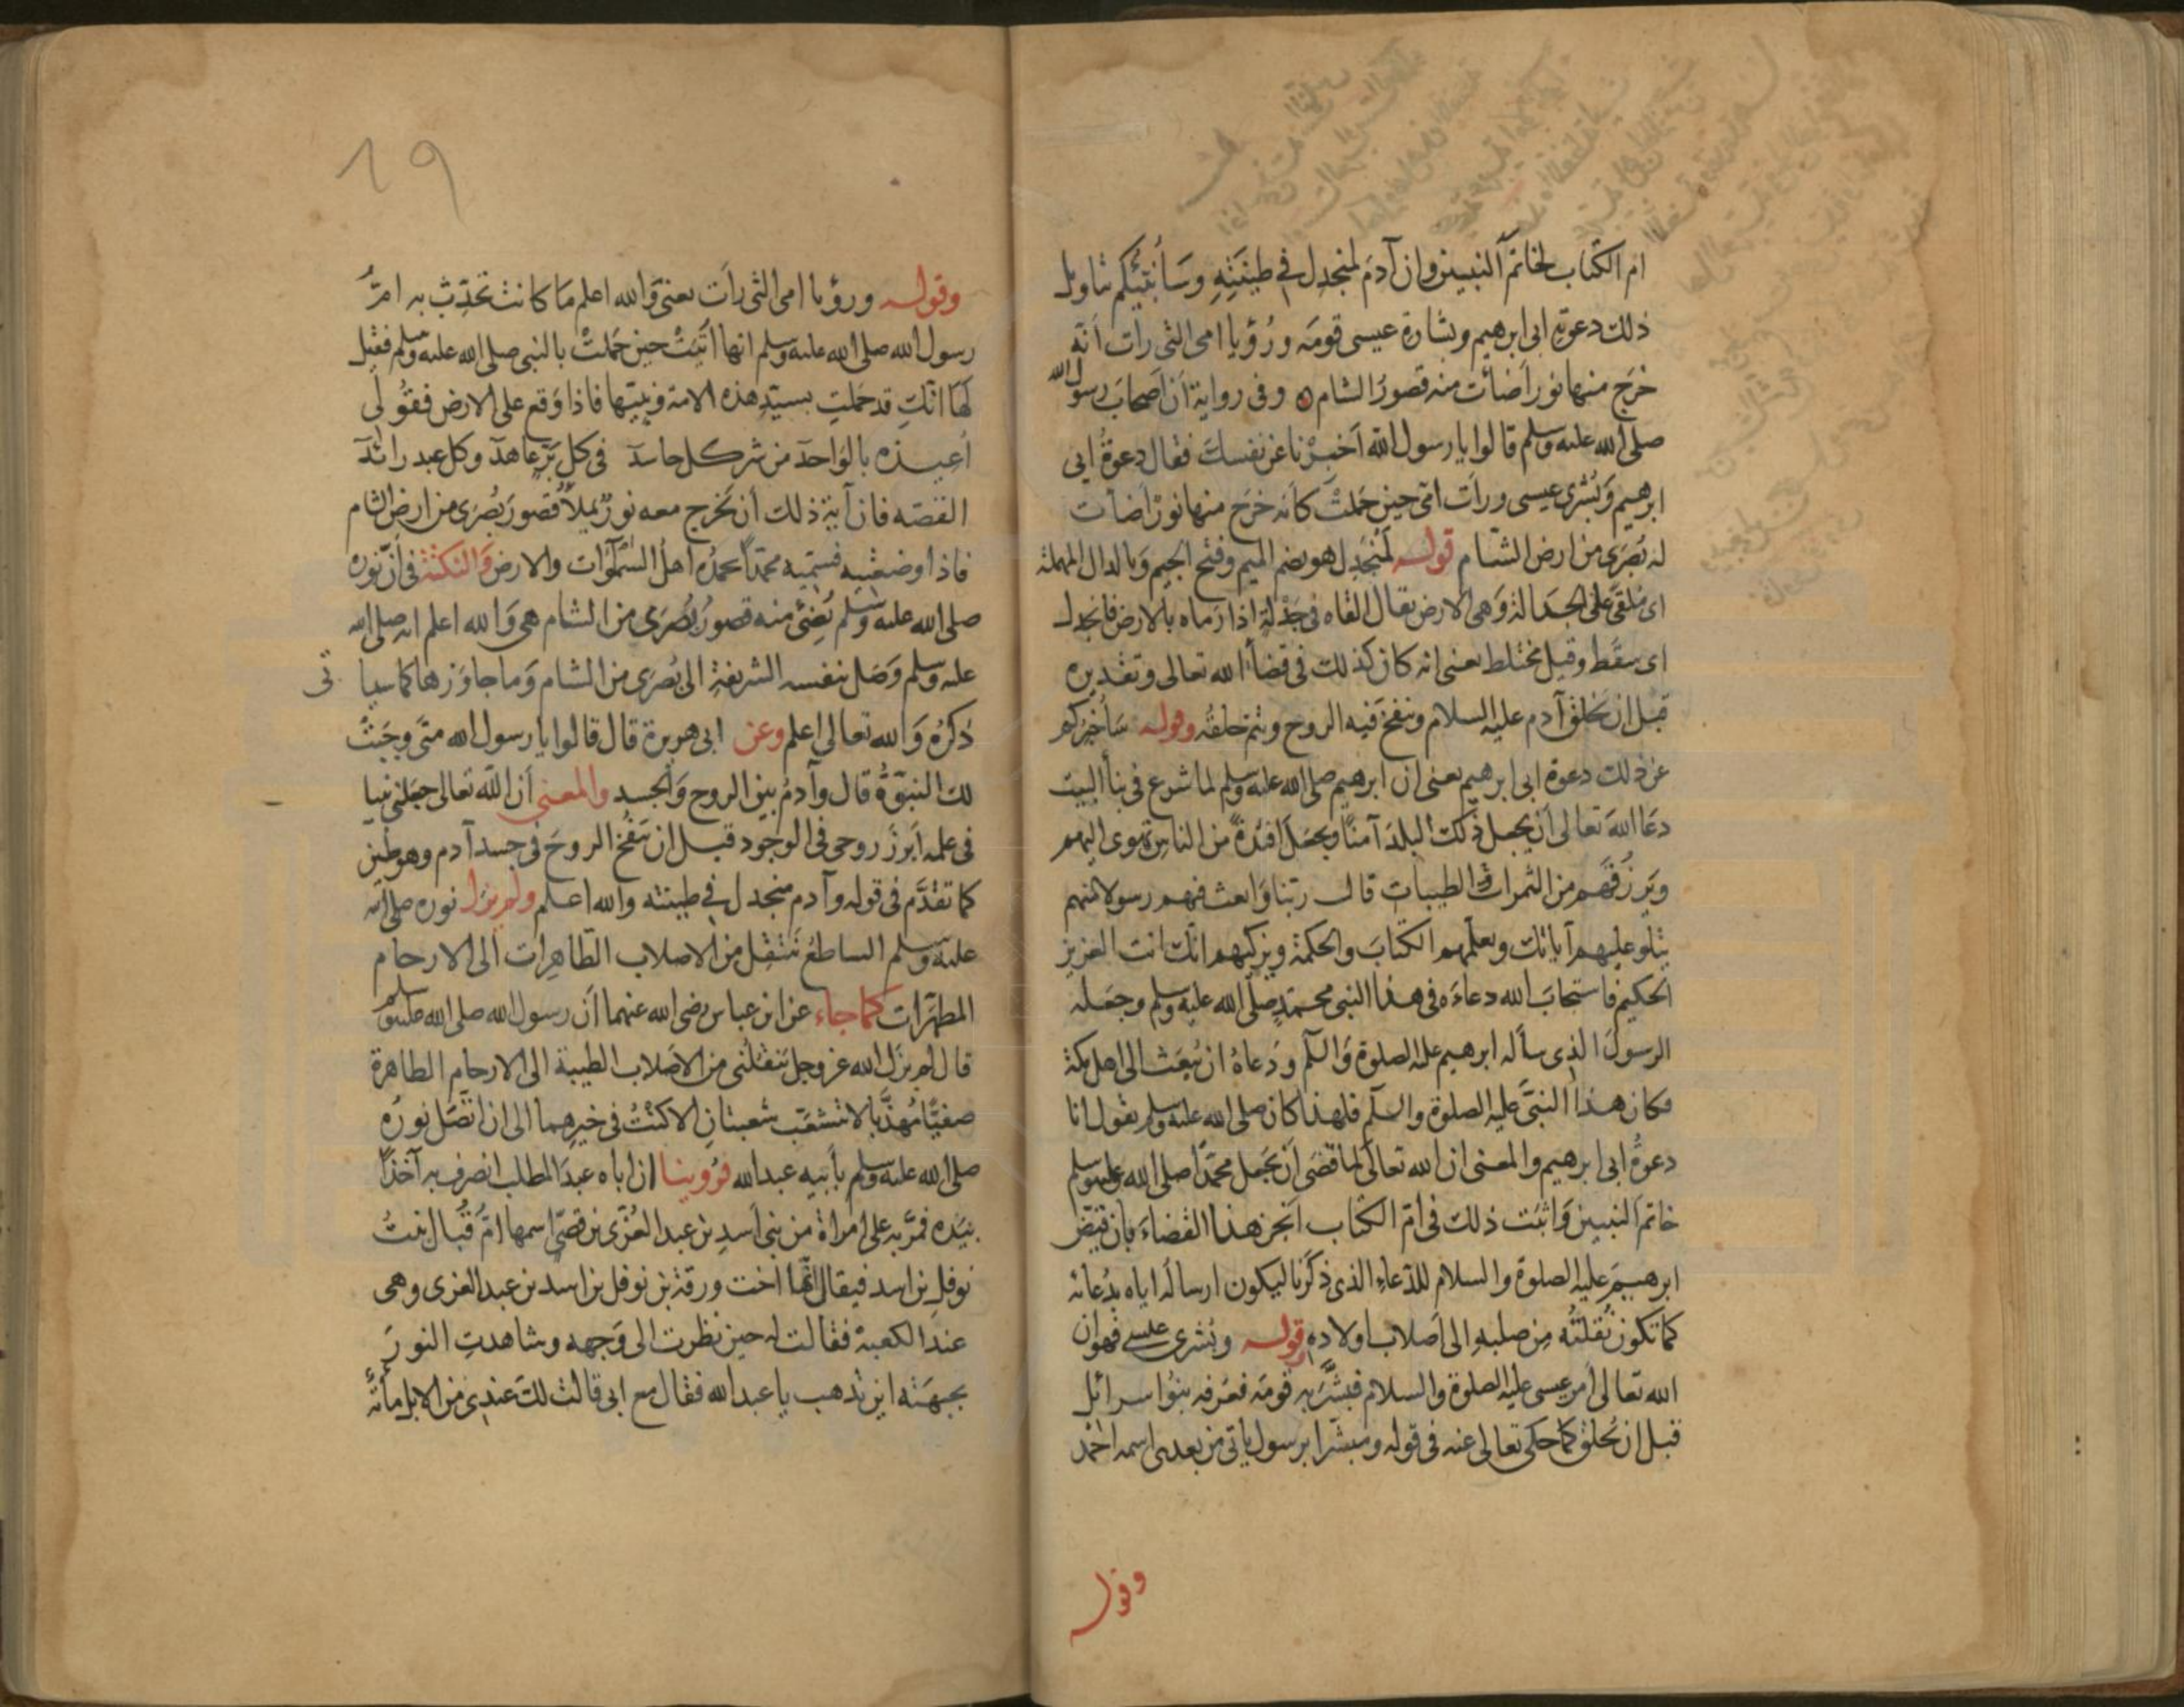 ام الكتاب لخاتم النبيين وان آدم لمنجدل في طينته وسأنبئكم بتاويل
ذلك دعوة ابى ابرهيم وبشارة عيسى قومه ورؤيا امى التى رات انه
خرج منها نور اضائت منه قصور الشام ٥ وفى رواية ان اصحاب رسول الله
صلى الله عليه وسلم قالوا يا رسول الله اخبرنا عن نفسك فقال دعوة ابى
ابرهيم وبشرى عيسى ورات امى حين حملت كانه خرج منها نور اضات
له بصرى من ارض الشام قوله لمنجدل هو بضم الميم وفتح الجيم وبالدال المهملة
اى ملقى على الجدالة وهى الارض يقال القاه فى جدلة اذا رماه بالارض فانجدل
اى سقط وقيل مختلط يعنى انه كان كذلك فى قضاء الله تعالى وتقديره
قبل ان يخلق آدم عليه السلام وينفخ فيه الروح ويتم خلقه وقوله ساخبركم
عن ذلك دعوة ابى ابرهيم يعنى ان ابرهيم صلى الله عليه وسلم لما شرع فى بنأ البيت
دعا الله تعالى ان يجعل ذلك البلد آمنا ويجعل افئدة من الناس تهوى اليهم
ويرزقهم من الثمرات الطيبات قال ربنا وابعث فيهم رسولا منهم
يتلو عليهم آياتك ويعلمهم الكتاب والحكمة ويزكيهم انك انت العزيز
الحكيم فاستجاب الله دعاءه فى هذا النبى محمد صلى الله عليه وسلم وجعله
الرسول الذى سأله ابرهيم عليه الصلوة والسلم ودعاه ان يبعث الى اهل مكة
فكان هذا النبى عليه الصلوة والسلم فلهذا كان صلى الله عليه وسلم يقول انا
دعوة ابى ابرهيم والمعنى ان الله تعالى لما قضى ان يجعل محمدا صلى الله عليه وسلم
خاتم النبيين واثبت ذلك فى ام الكتاب انجز هذا القضاء بان قيض
ابرهيم عليه الصلوة والسلام للدعاء الذى ذكرنا ليكون ارساله اياه بدعائه
كما تكون نقلته من صلبه الى اصلاب اولاده قوله وبشرى عيسى فهو ان
الله تعالى امر عيسى عليه الصلوة والسلام فبشر به قومه فعرفه بنوا سرائل
قبل ان يخلق كما حكى تعالى عنه فى قوله ومبشرا برسول ياتى من بعدى اسمه احمد
وقوله
١٩
وقوله ورؤيا امى التى رات يعنى والله اعلم ما كانت تحدث به ام
رسول الله صلى الله عليه وسلم انها اتيت حين حملت بالنبى صلى الله عليه وسلم فقيل
لها انك قد حملت بسيد هذه الامة ونبيها فاذا وقع على الارض فقولى
اعيذه بالواحد من شر كل حاسد فى كل بر عاهد وكل عبد رائد
القصه فان آية ذلك ان يخرج معه نور يملأ قصور بصرى من ارض الشام
فاذا وضعتيه فسميه محمدا يحمده اهل السموات والارض والنكتة فى ان نوره
صلى الله عليه وسلم يضئ منه قصور بصرى من الشام هى والله اعلم انه صلى الله
عليه وسلم وصل بنفسه الشريفة الى بصرى من الشام وما جاوزها كما سيا تى
ذكره والله تعالى اعلم وعن ابى هريرة قال قالوا يا رسول الله متى وجبت
لك النبوة قال وآدم بين الروح والجسد والمعنى ان الله تعالى جعلنى نبيا
فى علمه ابرز روحى فى الوجود قبل ان ينفخ الروح فى جسد آدم وهو طين
كما تقدم فى قوله وآدم منجدل فى طينته والله اعلم ولم يزل نوره صلى الله
عليه وسلم الساطع ينتقل من الاصلاب الطاهرات الى الارحام
المطهرات كما جاء عن ابن عباس رضى الله عنهما ان رسول الله صلى الله عليه وسلم
قال لم يزل الله عز وجل ينقلنى من الاصلاب الطيبة الى الارحام الطاهرة
صفيا مهذبا لا تتشعب شعبتان الا كنت فى خيرهما الى ان اتصل نوره
صلى الله عليه وسلم بأبيه عبد الله فروينا ان اباه عبد المطلب انصرف به آخذا
بيده فمر به على امراة من بنى اسد بن عبد العزى بن قصى اسمها ام قبال بنت
نوفل بن اسد فيقال انها اخت ورقة بن نوفل بن اسد بن عبد العزى وهى
عند الكعبة فقالت له حين نظرت الى وجهه وشاهدت النور
بجبهته اين تذهب يا عبد الله فقال مع ابى قالت لك عندى من الابل مأئة